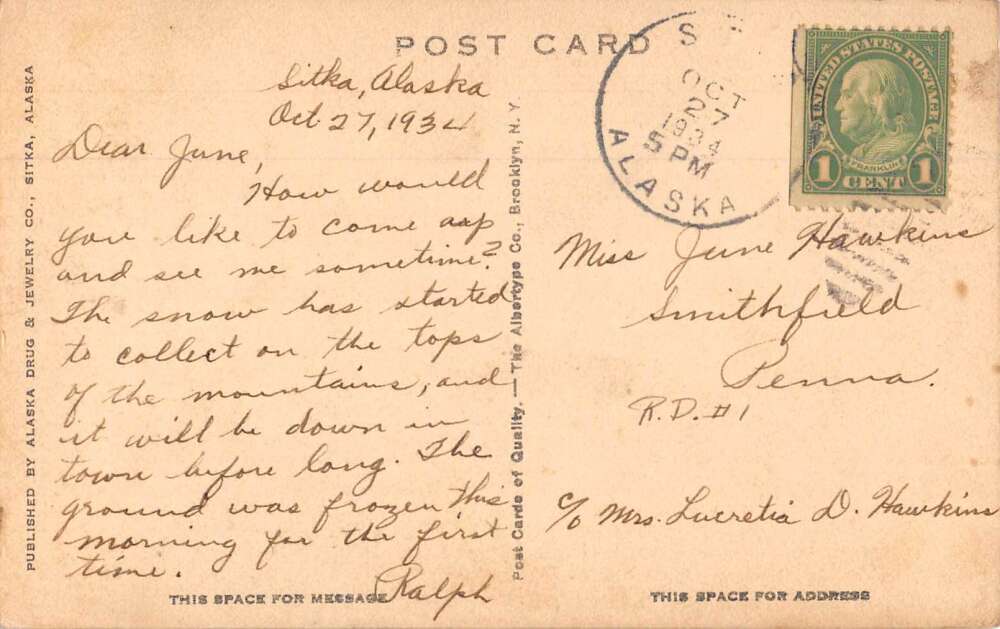 POST CARD
Sitka, Alaska
Oct 27, 1934
Dear June,
How would
you like to come up
and see me sometime?
The snow has started
to collect on the tops
of the mountains, and
it will be down in
town before long. The
ground was frozen this
morning for the first
time.
Ralph
THIS SPACE FOR MESSAGE
PUBLISHED BY ALASKA DRUG & JEWELRY CO., SITKA, ALASKA
Post Cards of Quality. — The Albertype Co., Brooklyn, N. Y.
S
OCT
27
1934
5 PM
ALASKA
UNITED STATES POSTAGE
FRANKLIN
1 CENT 1
Miss June Hawkins
Smithfield
Penna.
R.D. #1
c/o Mrs. Lucretia D. Hawkins
THIS SPACE FOR ADDRESS